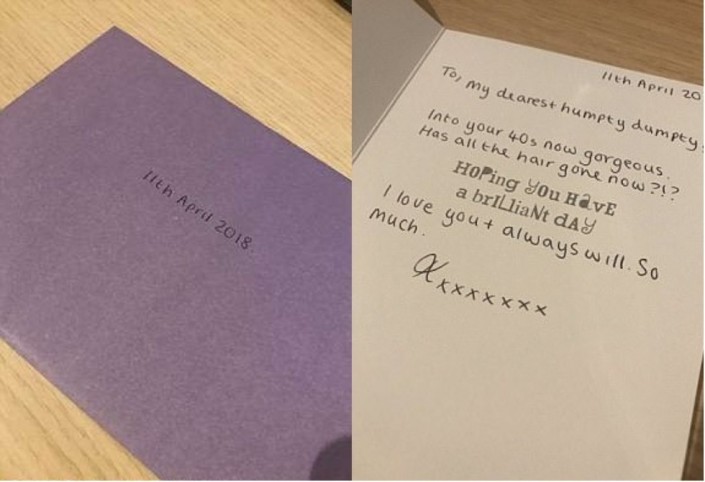 11th April 2018.
11th April 20
To, my dearest humpty dumpty.
Into your 40s now gorgeous.
Has all the hair gone now?!?
HoPing yOu HavE
a brILliaNt dAy
I love you + always will. So
much.
xxxxxxxx